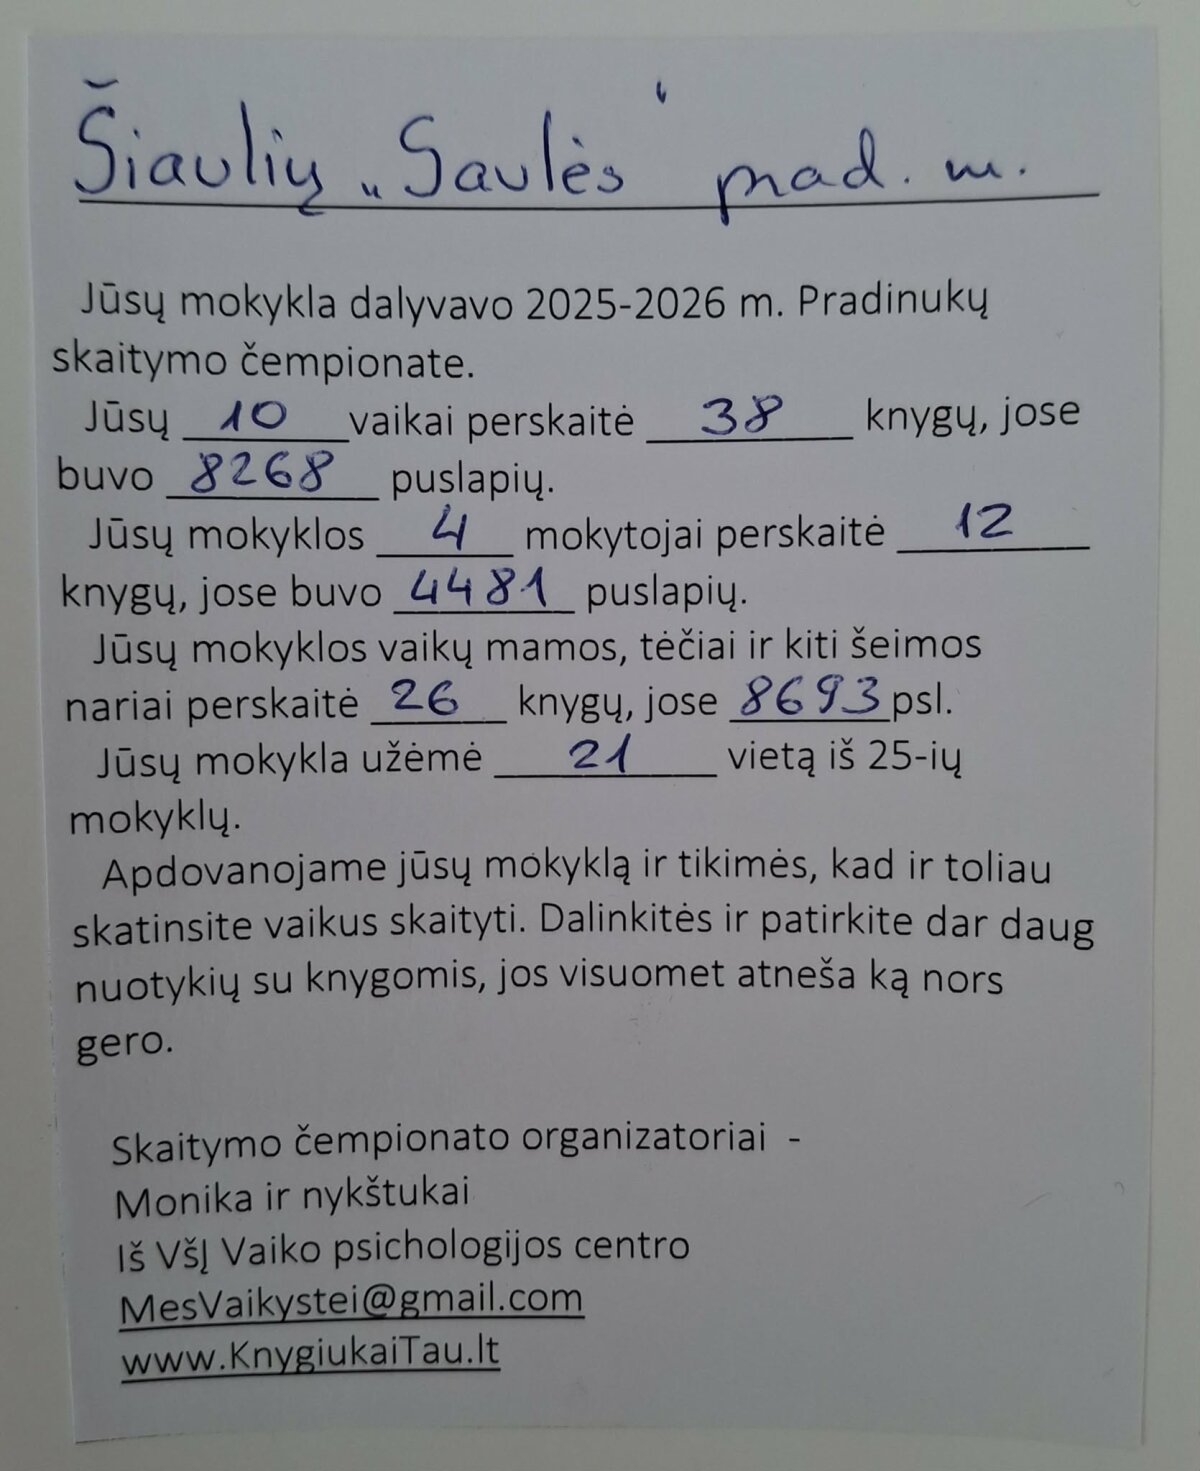 Šiaulių „Saulės“ prad. m.
Jūsų mokykla dalyvavo 2025-2026 m. Pradinukų
skaitymo čempionate.
Jūsų 10 vaikai perskaitė 38 knygų, jose
buvo 8268 puslapių.
Jūsų mokyklos 4 mokytojai perskaitė 12
knygų, jose buvo 4481 puslapių.
Jūsų mokyklos vaikų mamos, tėčiai ir kiti šeimos
nariai perskaitė 26 knygų, jose 8693 psl.
Jūsų mokykla užėmė 21 vietą iš 25-ių
mokyklų.
Apdovanojame jūsų mokyklą ir tikimės, kad ir toliau
skatinsite vaikus skaityti. Dalinkitės ir patirkite dar daug
nuotykių su knygomis, jos visuomet atneša ką nors
gero.
Skaitymo čempionato organizatoriai -
Monika ir nykštukai
Iš VšĮ Vaiko psichologijos centro
MesVaikystei@gmail.com
www.KnygiukaiTau.lt